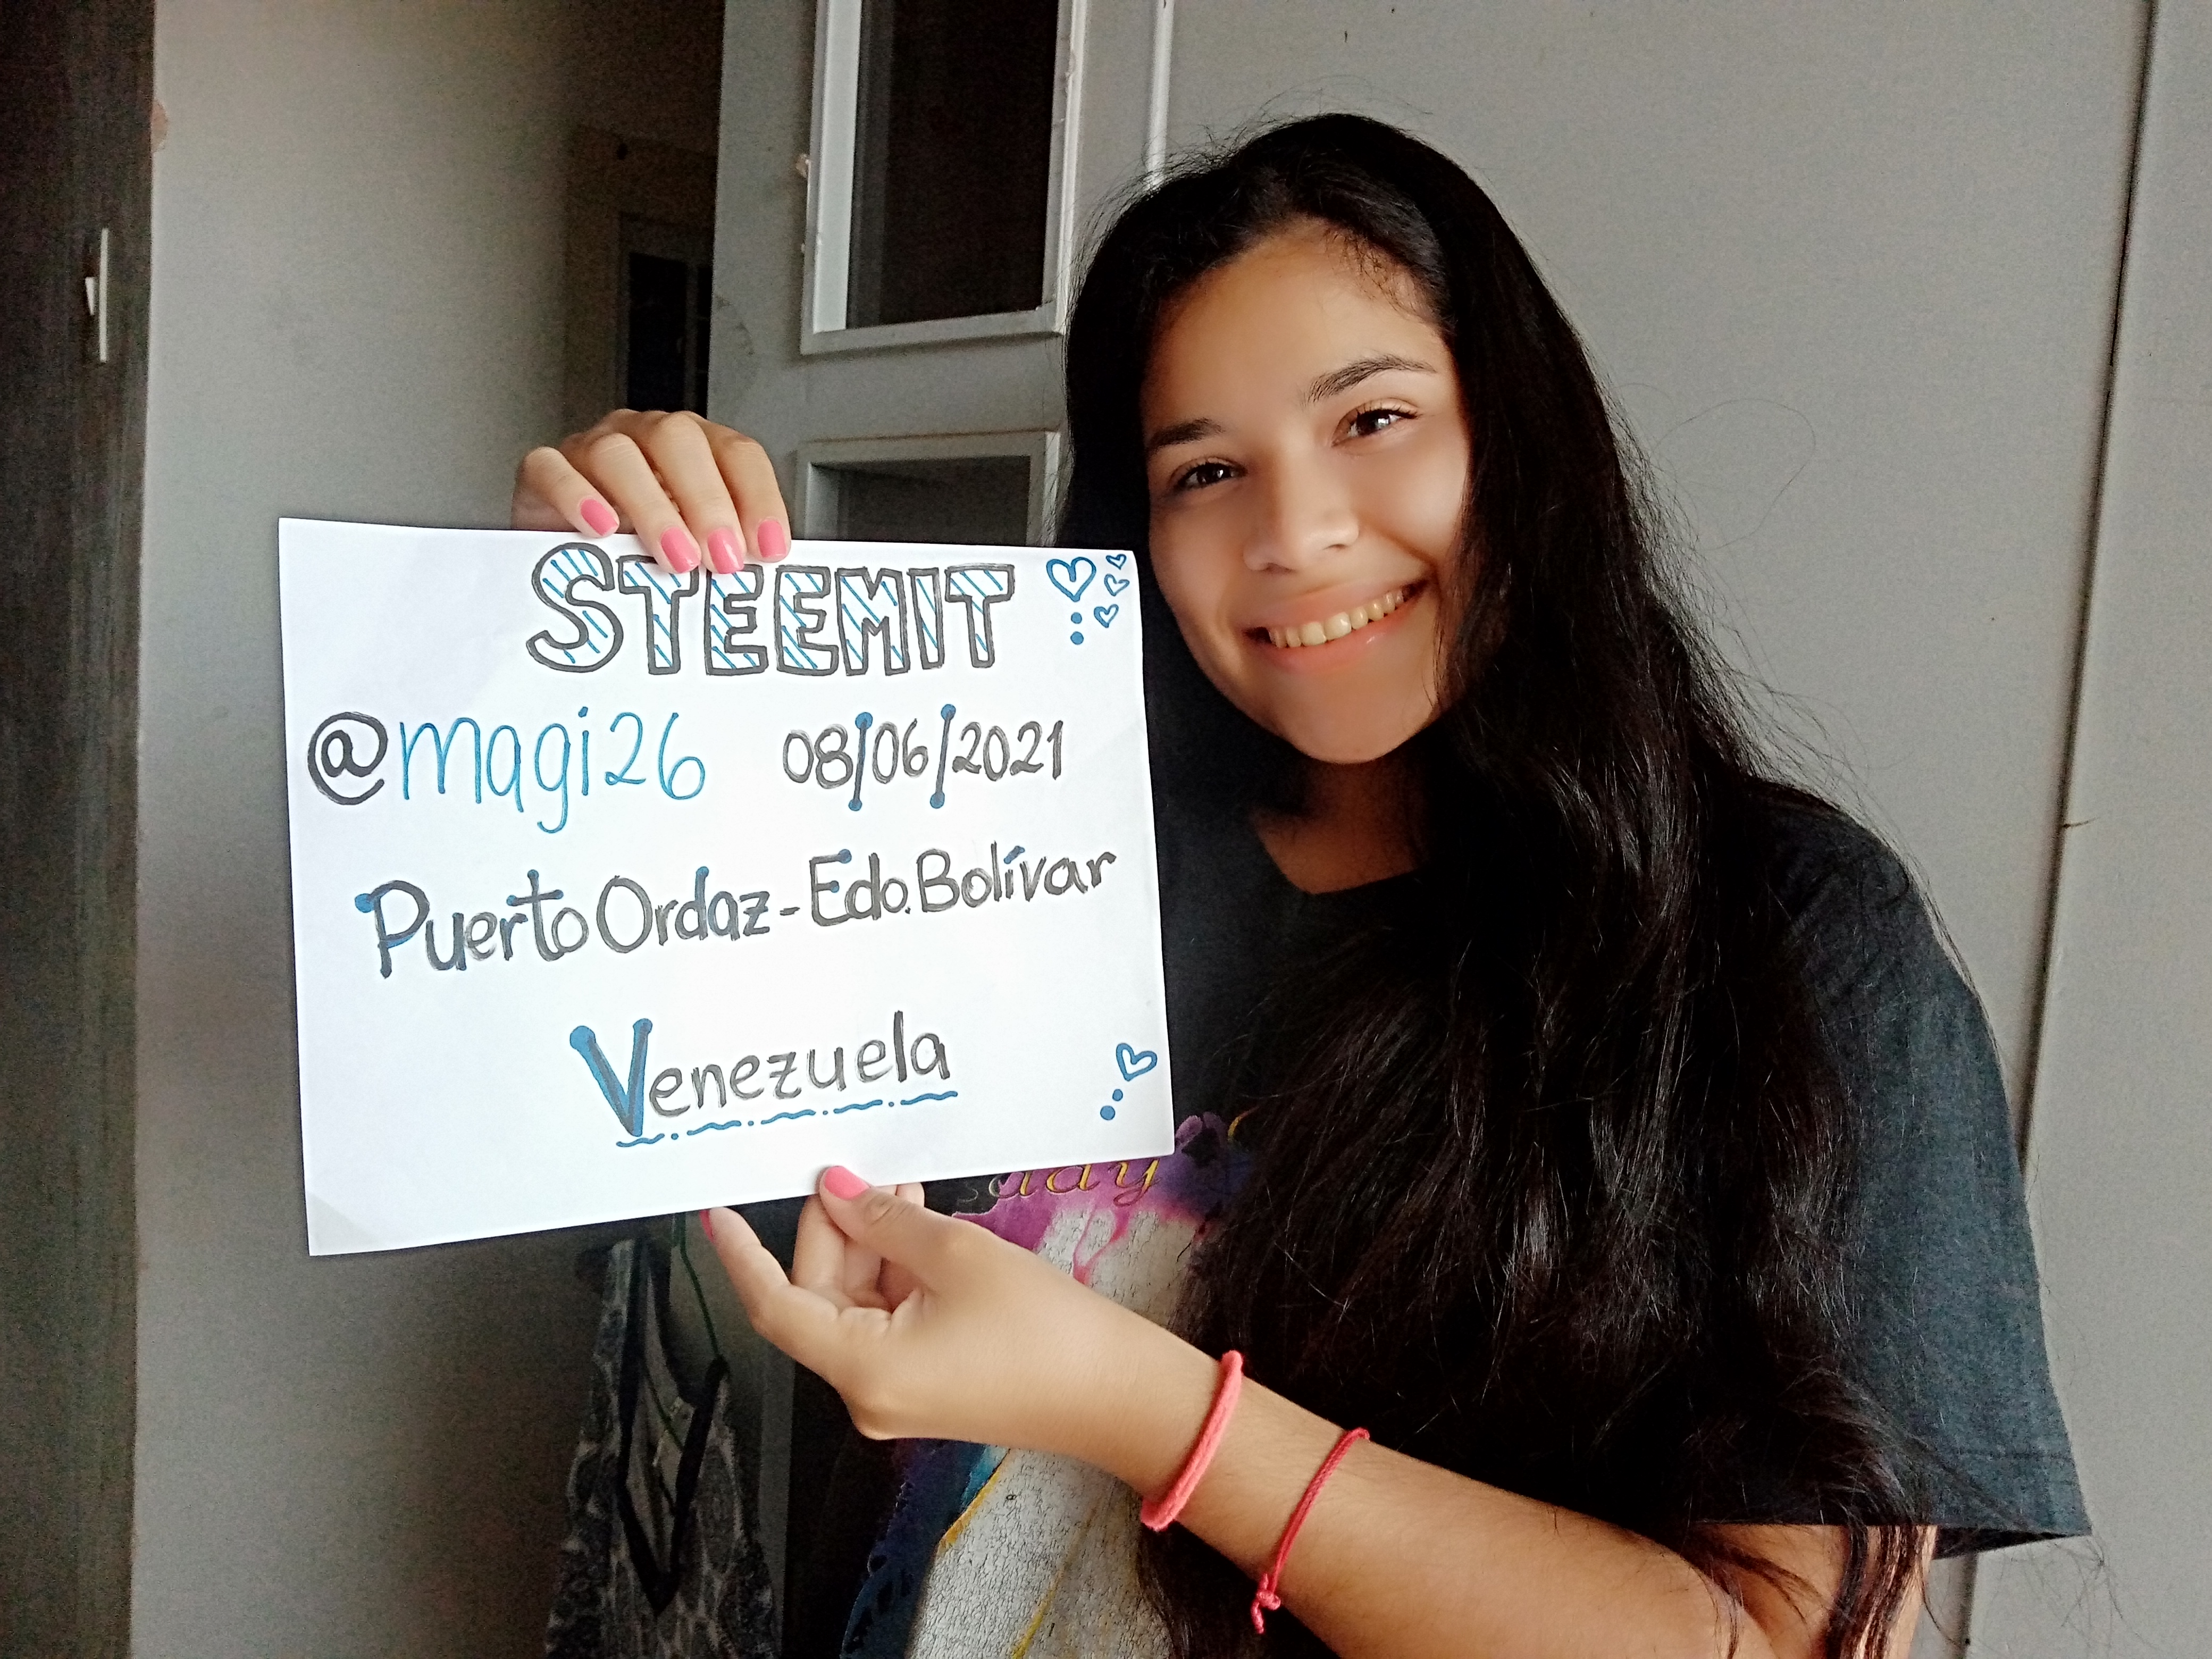 STEEMIT
@magi26 08/06/2021
Puerto Ordaz - Edo. Bolívar
Venezuela